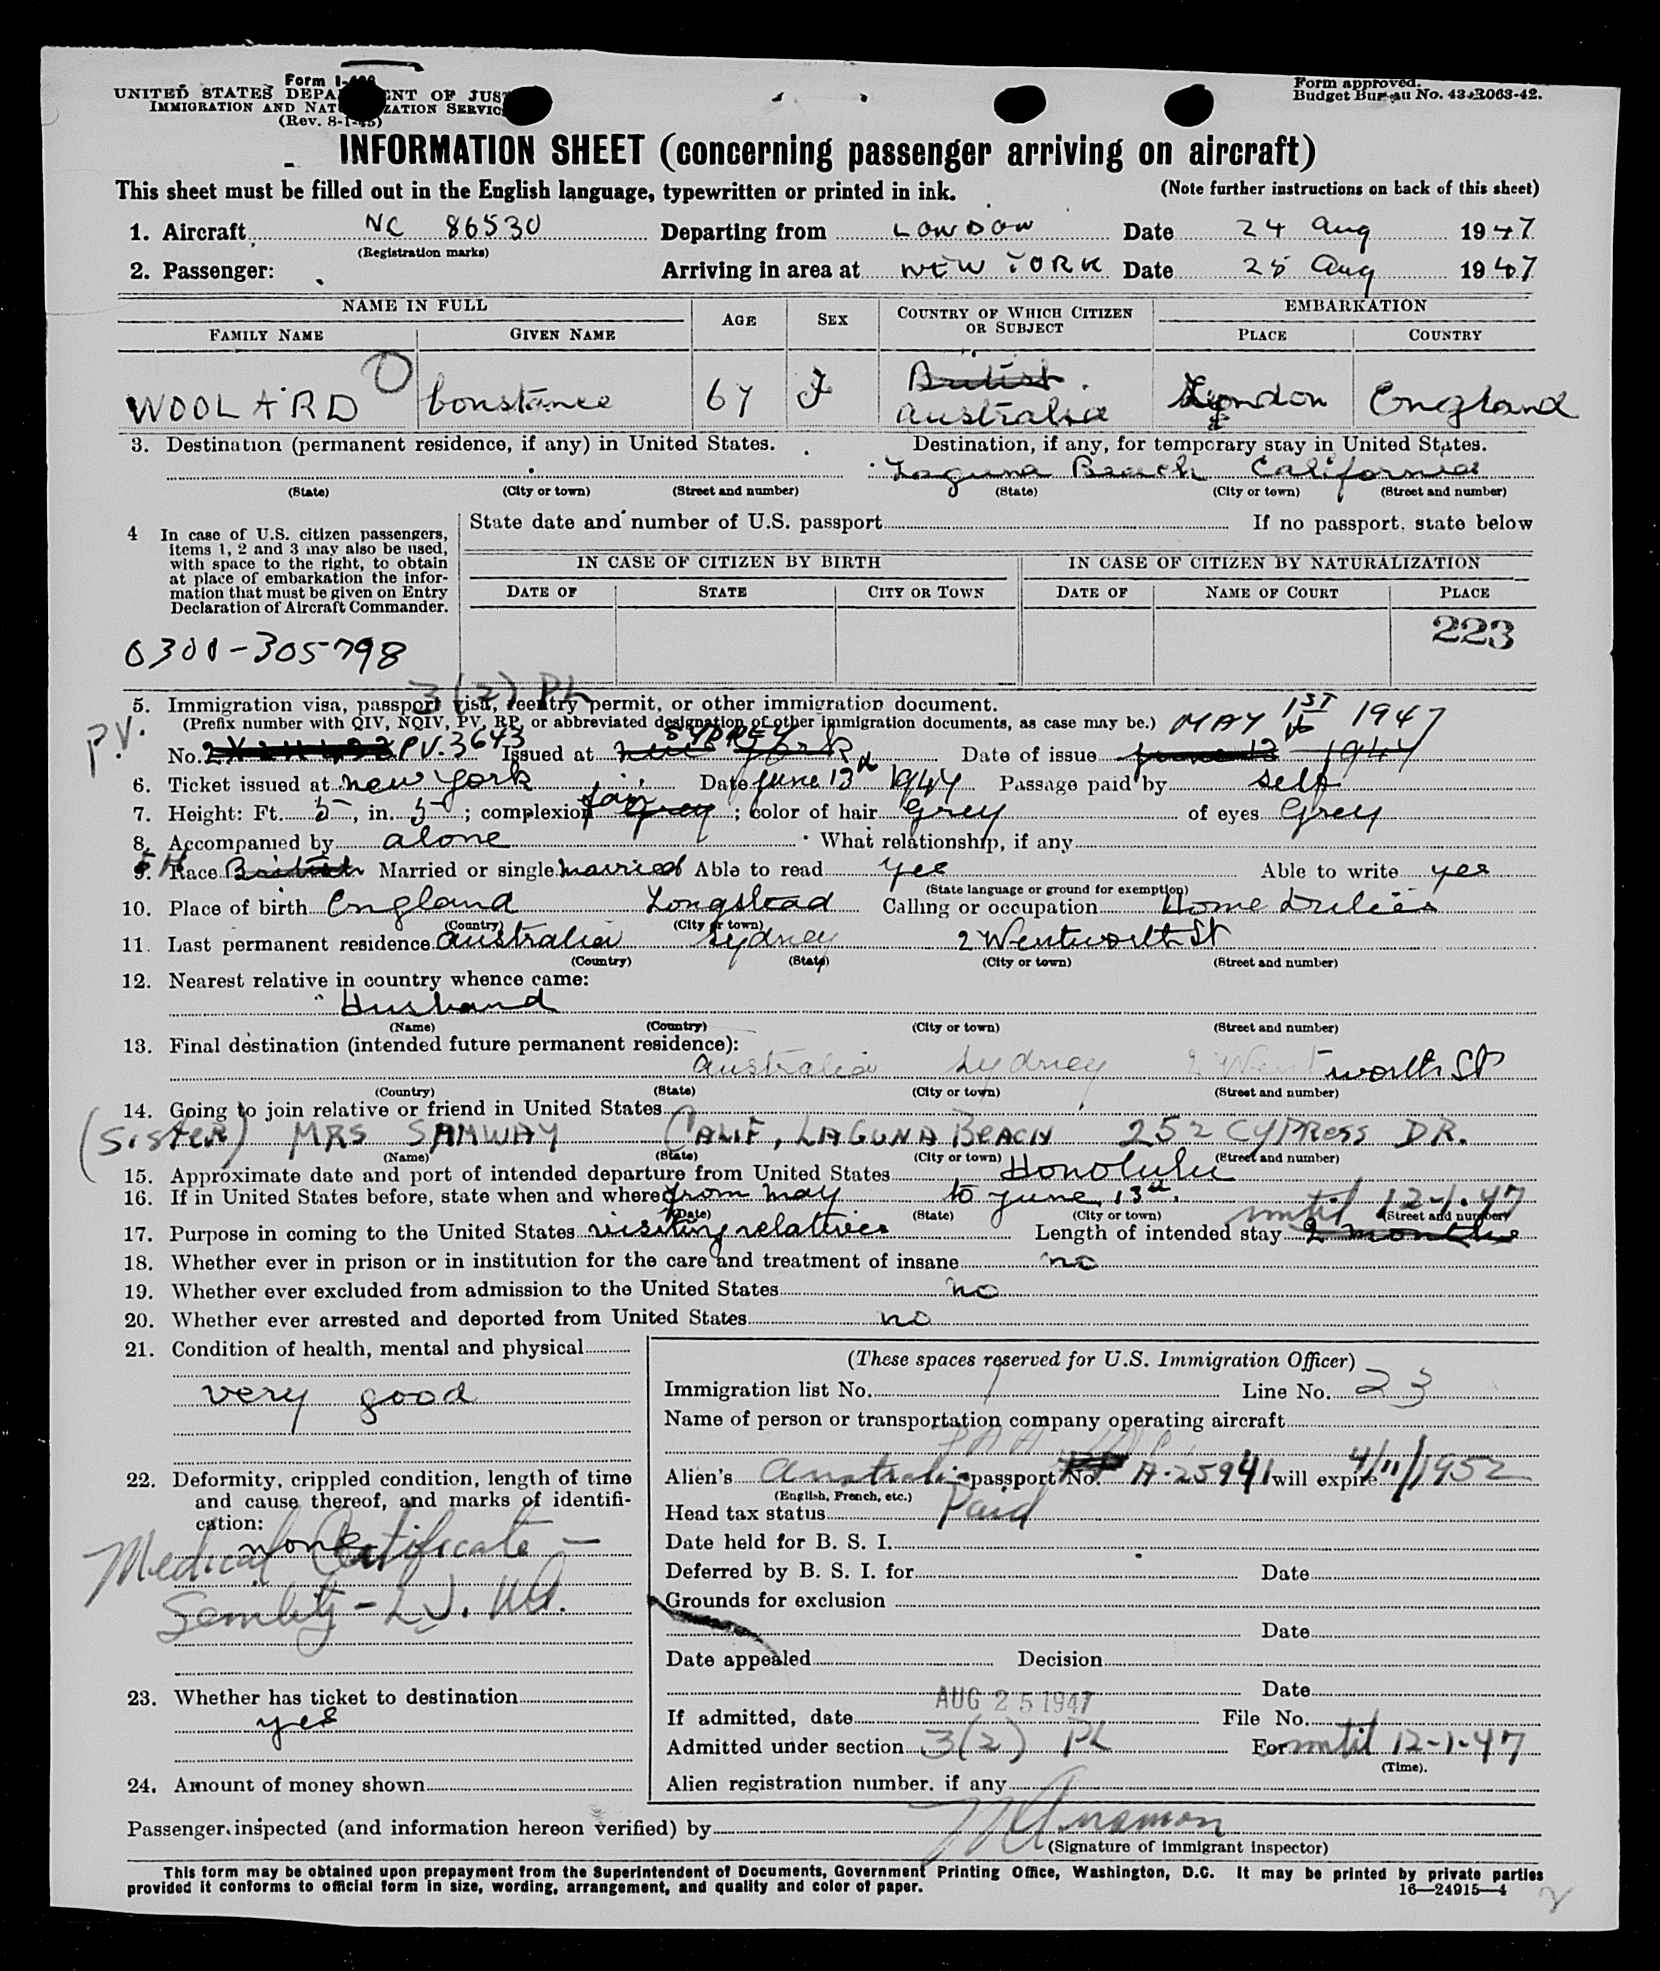 Form I-
UNITED STATES DEPARTMENT OF JUSTICE
IMMIGRATION AND NATURALIZATION SERVICE
(Rev. 8-1-45)
Form approved.
Budget Bureau No. 43-R063-42.
INFORMATION SHEET (concerning passenger arriving on aircraft)
This sheet must be filled out in the English language, typewritten or printed in ink. (Note further instructions on back of this sheet)
1. Aircraft NC 86530 Departing from LONDON Date 24 Aug 1947
(Registration marks)
2. Passenger: Arriving in area at NEW YORK Date 25 Aug 1947
NAME IN FULL AGE SEX COUNTRY OF WHICH CITIZEN OR SUBJECT EMBARKATION
FAMILY NAME GIVEN NAME PLACE COUNTRY
British
WOOLARD Constance 67 F Australia London England
3. Destination (permanent residence, if any) in United States. Destination, if any, for temporary stay in United States.
Laguna Beach California
(State) (City or town) (Street and number) (State) (City or town) (Street and number)
4 In case of U.S. citizen passengers, items 1, 2 and 3 may also be used, with space to the right, to obtain at place of embarkation the information that must be given on Entry Declaration of Aircraft Commander.
State date and number of U.S. passport If no passport, state below
IN CASE OF CITIZEN BY BIRTH IN CASE OF CITIZEN BY NATURALIZATION
DATE OF STATE CITY OR TOWN DATE OF NAME OF COURT PLACE
223
0300-305798
3(2) PL
5. Immigration visa, passport visa, reentry permit, or other immigration document.
(Prefix number with QIV, NQIV, PV, RP, or abbreviated designation of other immigration documents, as case may be.) MAY 1ST 1947
PV.
No. PV. 3643 Issued at SYDNEY New York Date of issue June 13 1947
6. Ticket issued at New York Date June 13th 1947 Passage paid by self
7. Height: Ft. 5, in. 5; complexion fair grey; color of hair Grey of eyes Grey
8. Accompanied by alone What relationship, if any
9. Race British Married or single married Able to read yes Able to write yes
(State language or ground for exemption)
10. Place of birth England Longstead Calling or occupation Home Duties
(Country) (City or town)
11. Last permanent residence Australia Sydney 2 Wentworth St
(Country) (State) (City or town) (Street and number)
12. Nearest relative in country whence came:
Husband
(Name) (Country) (City or town) (Street and number)
13. Final destination (intended future permanent residence):
Australia Sydney 2 Wentworth St
(Country) (State) (City or town) (Street and number)
14. Going to join relative or friend in United States
(SISTER) MRS SAMWAY CALIF, LAGUNA BEACH 252 CYPRESS DR.
(Name) (State) (City or town) (Street and number)
15. Approximate date and port of intended departure from United States Honolulu
16. If in United States before, state when and where from May to June 13th.
(Date) (State) (City or town) (Street and number)
until 12-1-47
17. Purpose in coming to the United States visiting relatives Length of intended stay 2 months
18. Whether ever in prison or in institution for the care and treatment of insane no
19. Whether ever excluded from admission to the United States no
20. Whether ever arrested and deported from United States no
21. Condition of health, mental and physical
very good
22. Deformity, crippled condition, length of time and cause thereof, and marks of identification:
none
Medical Certificate -
23. Whether has ticket to destination
yes
24. Amount of money shown
(These spaces reserved for U.S. Immigration Officer)
Immigration list No. 1 Line No. 23
Name of person or transportation company operating aircraft
Alien's Australia passport No. A-25941 will expire 4/11/1952
(English, French, etc.)
Head tax status Paid
Date held for B. S. I.
Deferred by B. S. I. for Date
Grounds for exclusion
Date
Date appealed Decision
Date
If admitted, date AUG 25 1947 File No.
Admitted under section 3(2) PL For until 12-1-47
(Time).
Alien registration number, if any
Passenger inspected (and information hereon verified) by
(Signature of immigrant inspector)
This form may be obtained upon prepayment from the Superintendent of Documents, Government Printing Office, Washington, D.C. It may be printed by private parties
provided it conforms to official form in size, wording, arrangement, and quality and color of paper. 16—24915—4